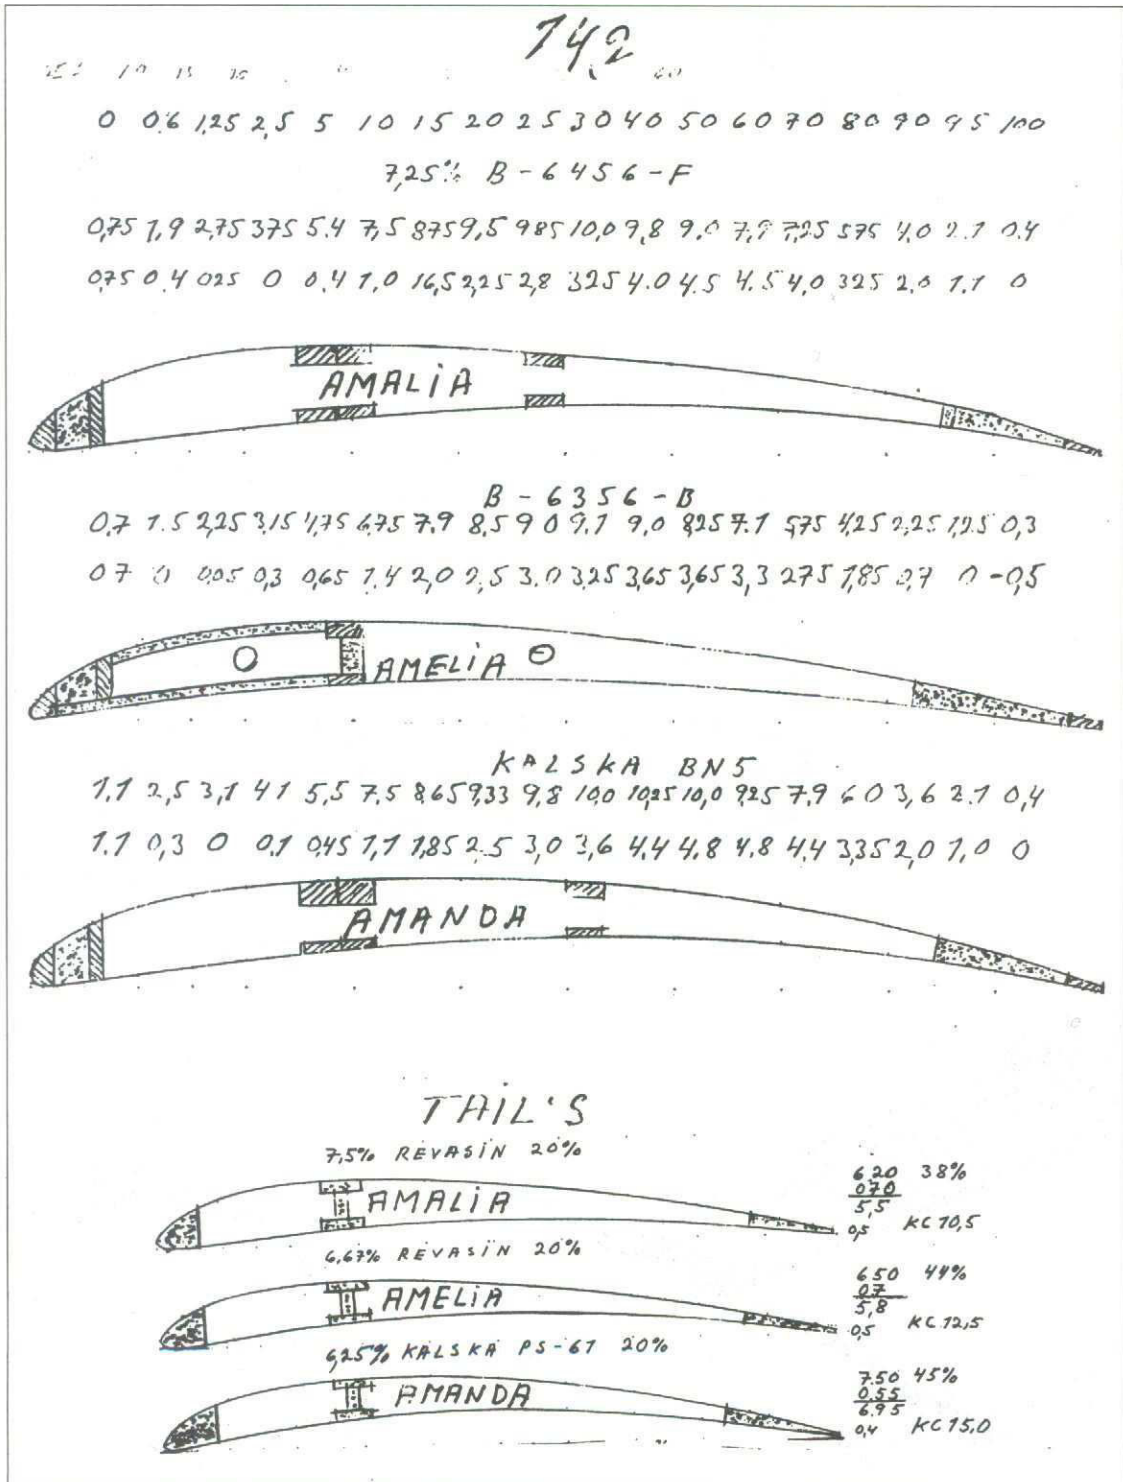 142
0 0,6 1,25 2,5 5 10 15 20 25 30 40 50 60 70 80 90 95 100
7,25% B-6456-F
0,75 1,9 2,75 375 5.4 7,5 875 9,5 985 10,0 9,8 9.0 7,9 7,25 575 4,0 2.1 0.4
0,75 0.4 025 0 0.4 1.0 16,5 2,25 2,8 325 4.0 4.5 4.5 4,0 325 2,0 1.1 0
AMALiA
B-6356-B
0,7 1.5 2,25 3,15 4,75 6,75 7.9 8,5 9 0 9.1 9,0 8,25 7.1 5,75 4,25 2,25 1,25 0,3
0 7 0 0,05 0,3 0,65 1,4 2,0 2,5 3.0 3,25 3,65 3,65 3,3 275 1,85 0,7 0 -0,5
AMELiA
KALSKA BN5
1,1 2,5 3,1 41 5,5 7.5 8,65 9,33 9,8 10,0 10,25 10,0 9,25 7,9 6 0 3,6 2.1 0,4
1.1 0,3 0 0,1 0,45 1,1 1,85 2.5 3,0 3,6 4.4 4.8 4.8 4.4 3,35 2,0 1,0 0
AMANDA
TAiL'S
7,5% REVASiN 20%
AMALiA
620 38%
070
5,5
0,5 KC 10,5
6,67% REVASiN 20%
AMELiA
650 44%
0.7
5,8
0,5 KC 12,5
6,25% KALSKA PS-61 20%
AMANDA
7.50 45%
0.55
6.95
0,4 KC 15,0